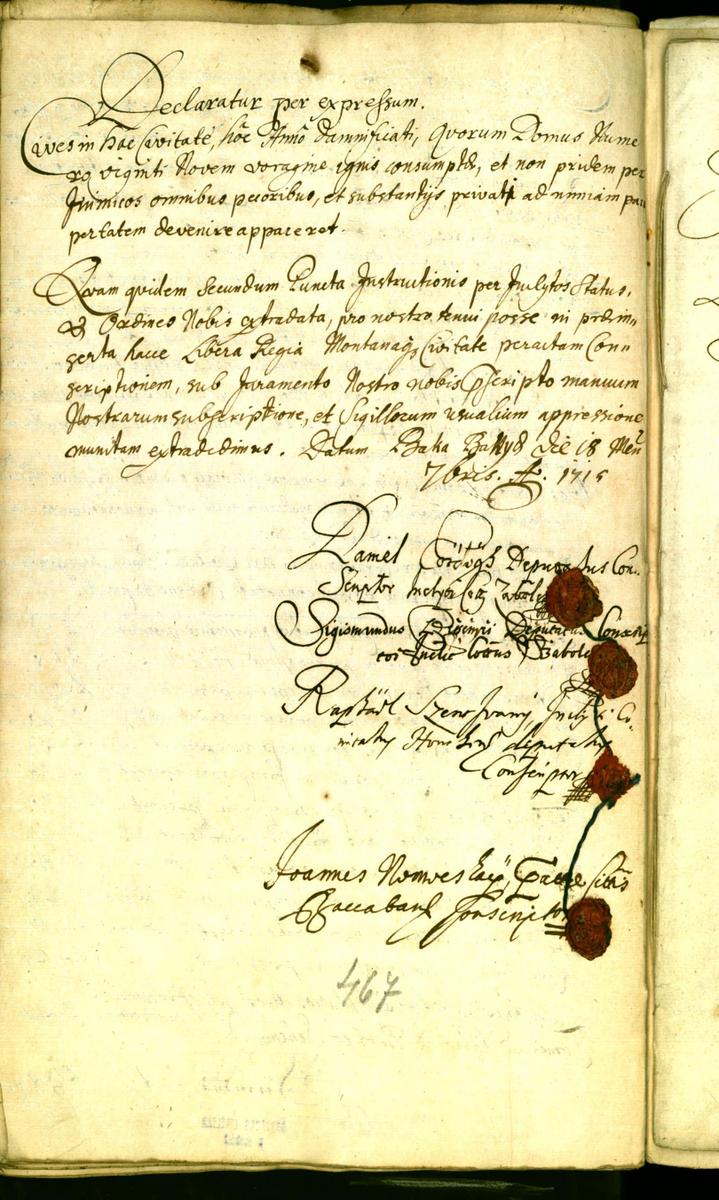 Declaratur per expressum.
Cives in hac Civitate, hoc Anno damnificati, Quorum Domus Nume
ro viginti Novem voragine ignis consumptæ, et non pridem per
Inimicos omnibus pecoribus, et substantijs privati ad nimiam pau
pertatem devenire appareret.
Quam quidem secundum Puncta Instructionis per Inclytos Status,
& Ordines Nobis extradata, pro nostro tenui posse in præin„
serta hacce Libera Regia Montanaq Civitate peractam Con„
scriptionem, sub Juramento Nostro nobis Pscripto manuum
Nostrarum subscriptione, et Sigillorum usualium appressione
munitam extradedimus. Datum Baka Die 18 Men
7bris. Ao. 1715
Daniel Deputatus Con„
Scriptor
Sigismundus Deputatus Conscrip
tor
Raphäel Szent Ivanÿ, Co„
mitatus deputatus
Conscriptor
Joannes
Conscriptor
467